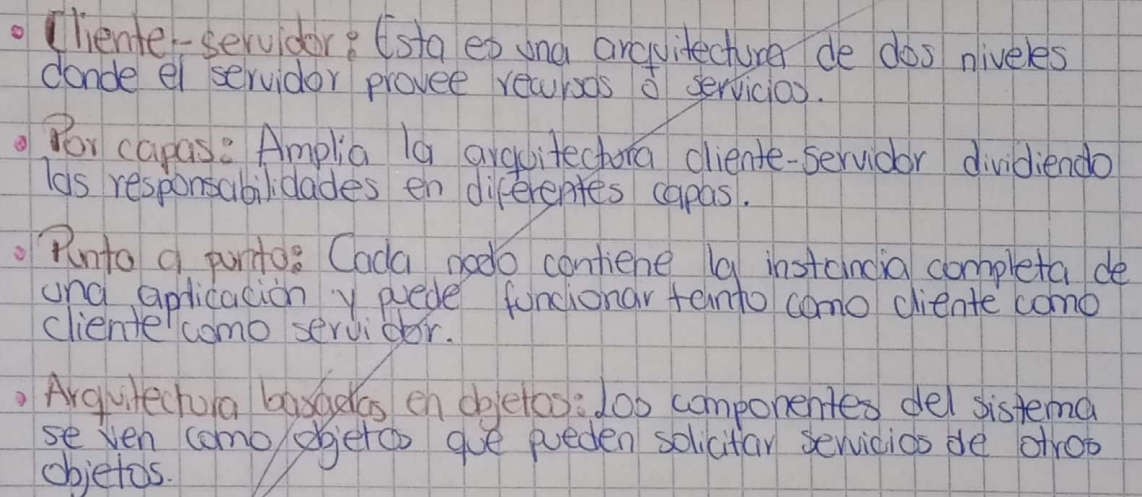 Cliente-servidor: Esta es una arquitectura de dos niveles
donde el servidor provee recursos o servicios.
Por capas: Amplia la arquitectura cliente-servidor dividiendo
las responsabilidades en diferentes capas.
Punto a punto: Cada nodo contiene la instancia completa de
una aplicación y puede funcionar tanto como cliente como
cliente como servidor.
Arquitectura basadas en objetos: Los componentes del sistema
se ven como objetos que pueden solicitar servicios de otros
objetos.